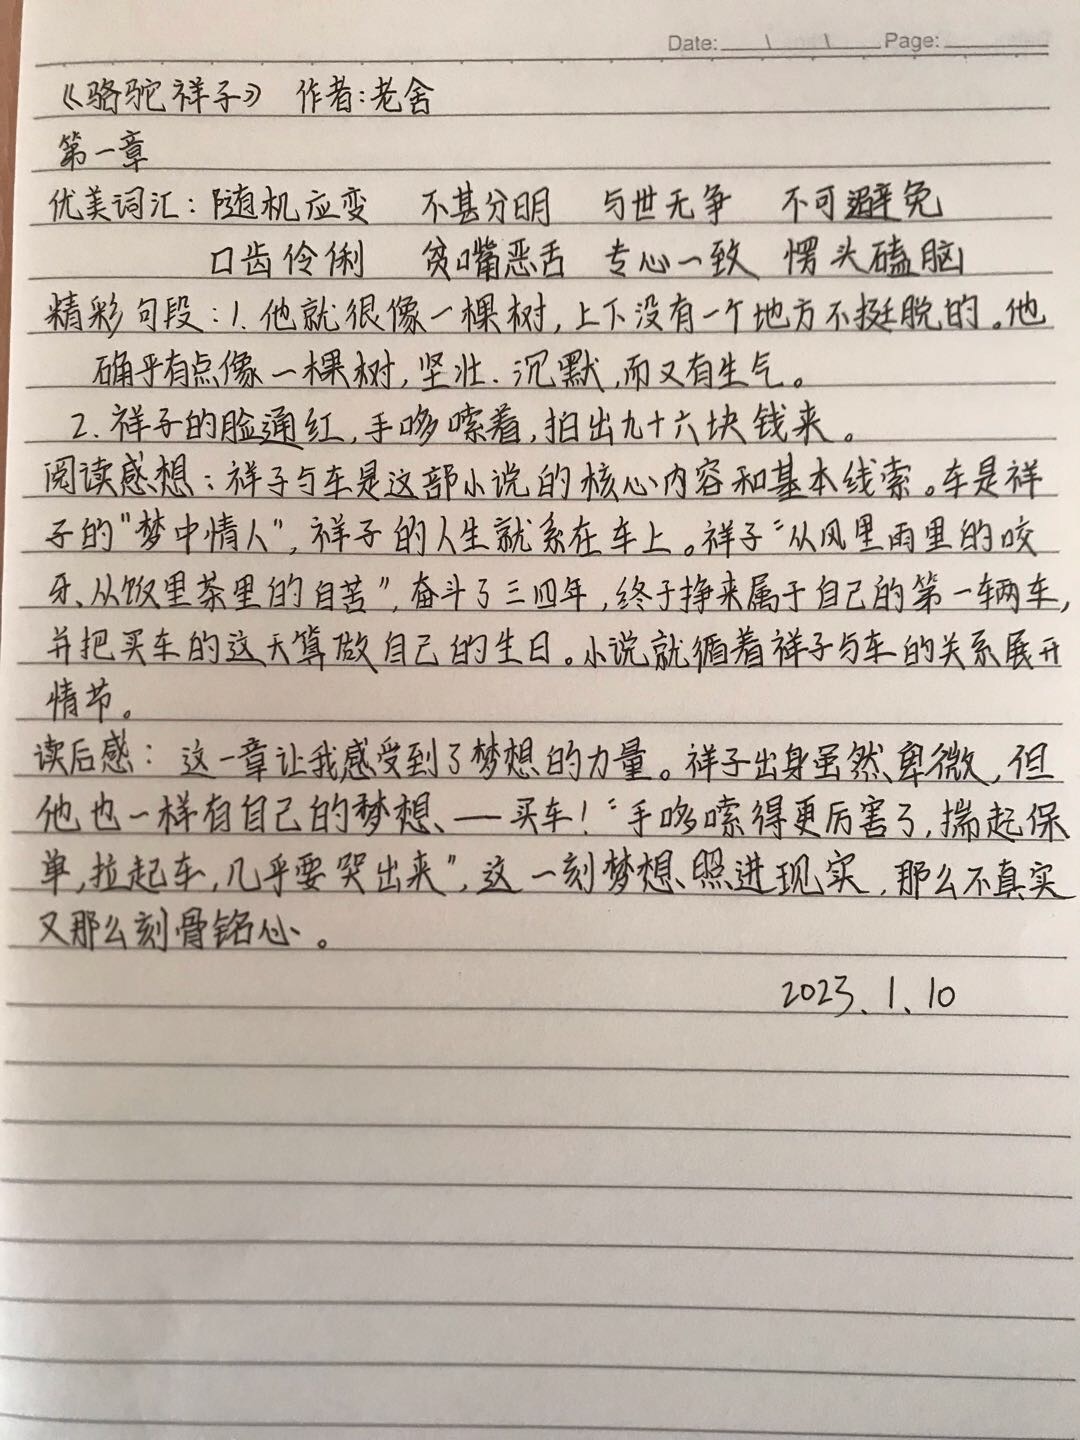 Date: \ \ Page:
《骆驼祥子》 作者:老舍
第一章
优美词汇：随机应变 不甚分明 与世无争 不可避免
口齿伶俐 贫嘴恶舌 专心一致 愣头磕脑
精彩句段：1.他就很像一棵树,上下没有一个地方不挺脱的。他
确乎有点像一棵树,坚壮.沉默,而又有生气。
2.祥子的脸通红,手哆嗦着,拍出九十六块钱来。
阅读感想：祥子与车是这部小说的核心内容和基本线索。车是祥
子的"梦中情人",祥子的人生就系在车上。祥子"从风里雨里的咬
牙、从饭里茶里的自苦",奋斗了三四年,终于挣来属于自己的第一辆车,
并把买车的这天算做自己的生日。小说就循着祥子与车的关系展开
情节。
读后感：这一章让我感受到了梦想的力量。祥子出身虽然卑微,但
他也一样有自己的梦想、——买车!"手哆嗦得更厉害了,揣起保
单,拉起车,几乎要哭出来",这一刻梦想照进现实,那么不真实
又那么刻骨铭心。
2023.1.10